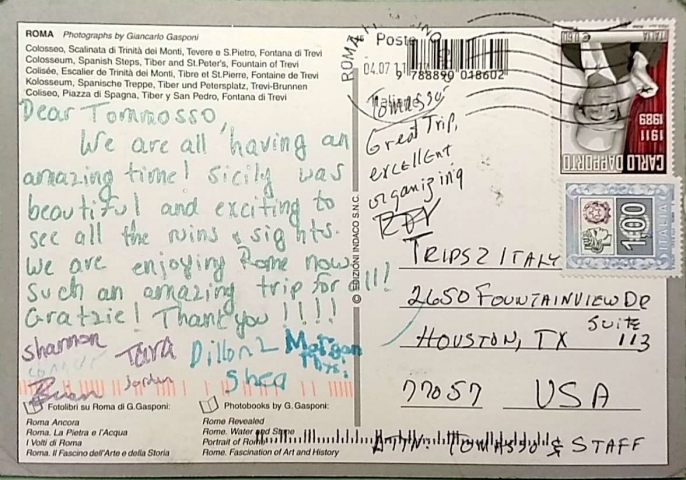 ROMA Photographs by Giancarlo Gasponi
Colosseo, Scalinata di Trinità dei Monti, Tevere e S.Pietro, Fontana di Trevi
Colosseum, Spanish Steps, Tiber and St.Peter's, Fountain of Trevi
Colisée, Escalier de Trinità dei Monti, Tibre et St.Pierre, Fontaine de Trevi
Kolosseum, Spanische Treppe, Tiber und Petersplatz, Trevi-Brunnen
Coliseo, Piazza di Spagna, Tiber y San Pedro, Fontana di Trevi
Dear Tommosso,
We are all having an
amazing time! Sicily was
beautiful and exciting to
see all the ruins & sights.
We are enjoying Rome now
Such an amazing trip for !!!
Gratzie! Thank you !!!!
Shannon Tara Dillon L Morgan
Connor Jordan Shea
Brian
Fotolibri su Roma di G.Gasponi:
Roma Ancora
Roma. La Pietra e l'Acqua
I Volti di Roma
Roma. Il Fascino dell'Arte e della Storia
Photobooks by G.Gasponi:
Rome Revealed
Rome. Water and Stone
Portrait of Rome
Rome. Fascination of Art and History
© EDIZIONI INDACO S.N.C.
ROMA
Poste
04.07.11
9 788890 018602
Tomosso
Great Trip,
excellent
organizing
TRIPS 2 ITALY
2650 FOUNTAINVIEW DR
SUITE
HOUSTON, TX 113
77057 USA
ATTN: TOMASSO & STAFF
ITALIA €0,60
1911
1989
CARLO DAPPORTO
ITALIA